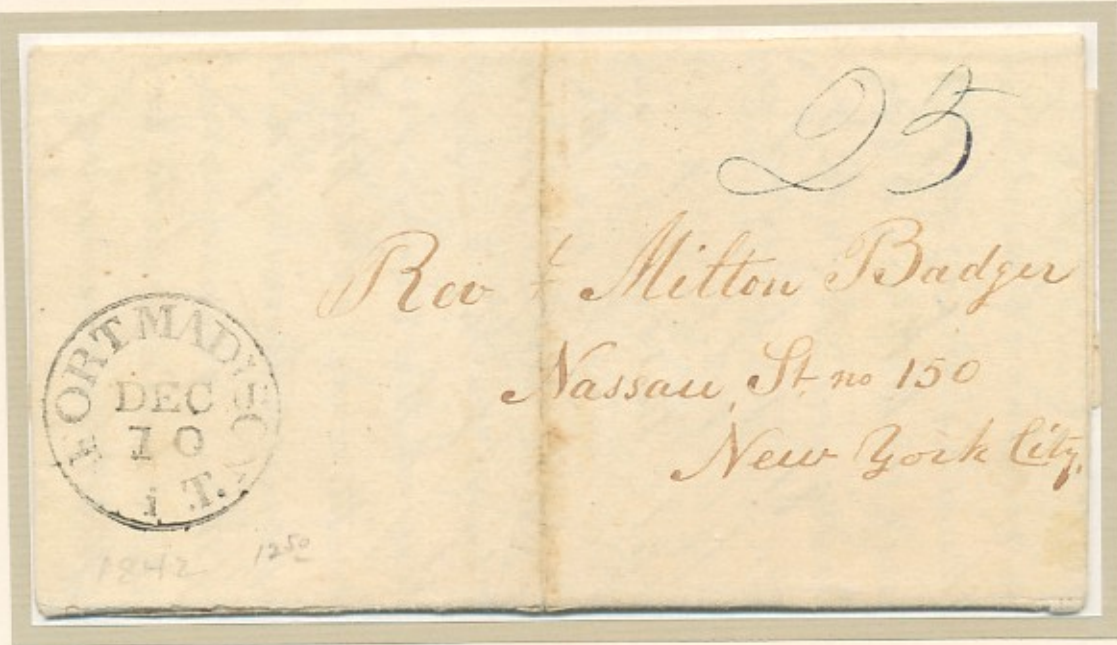 25
Rev^d Milton Badger
Nassau St. no 150
New York City.
FORT MADISON
DEC
10
i T.
1842 12 50